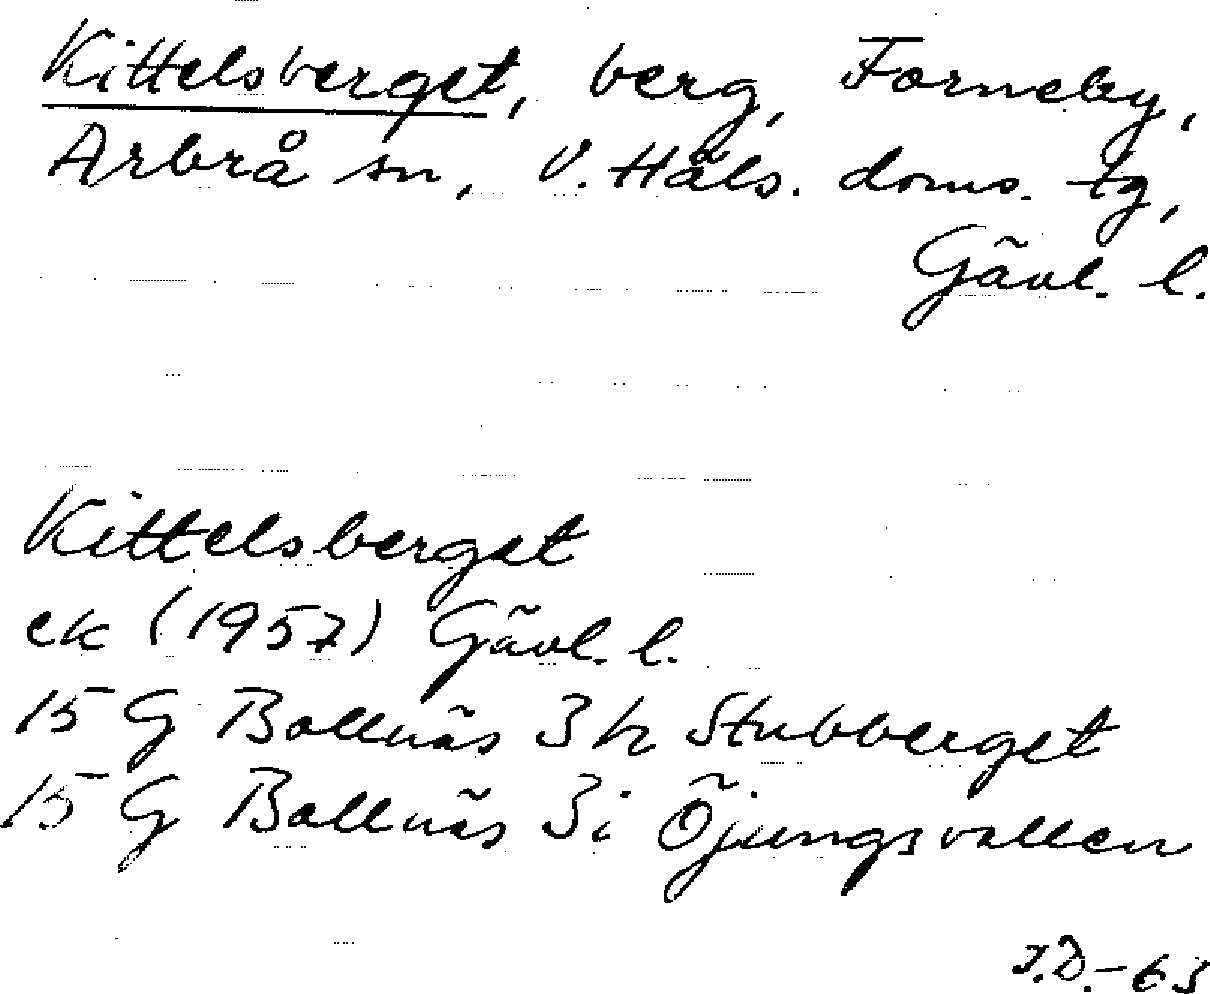 Kittelsberget, berg, Forneby,
Arbrå sn, V. Häls. doms. tg,
Gävl. l.
Kittelsberget
ek (1957) Gävl. l.
15 G Bollnäs 3 h Stubberget
15 G Bollnäs 3 i Öjungsvallen
J.D.-63